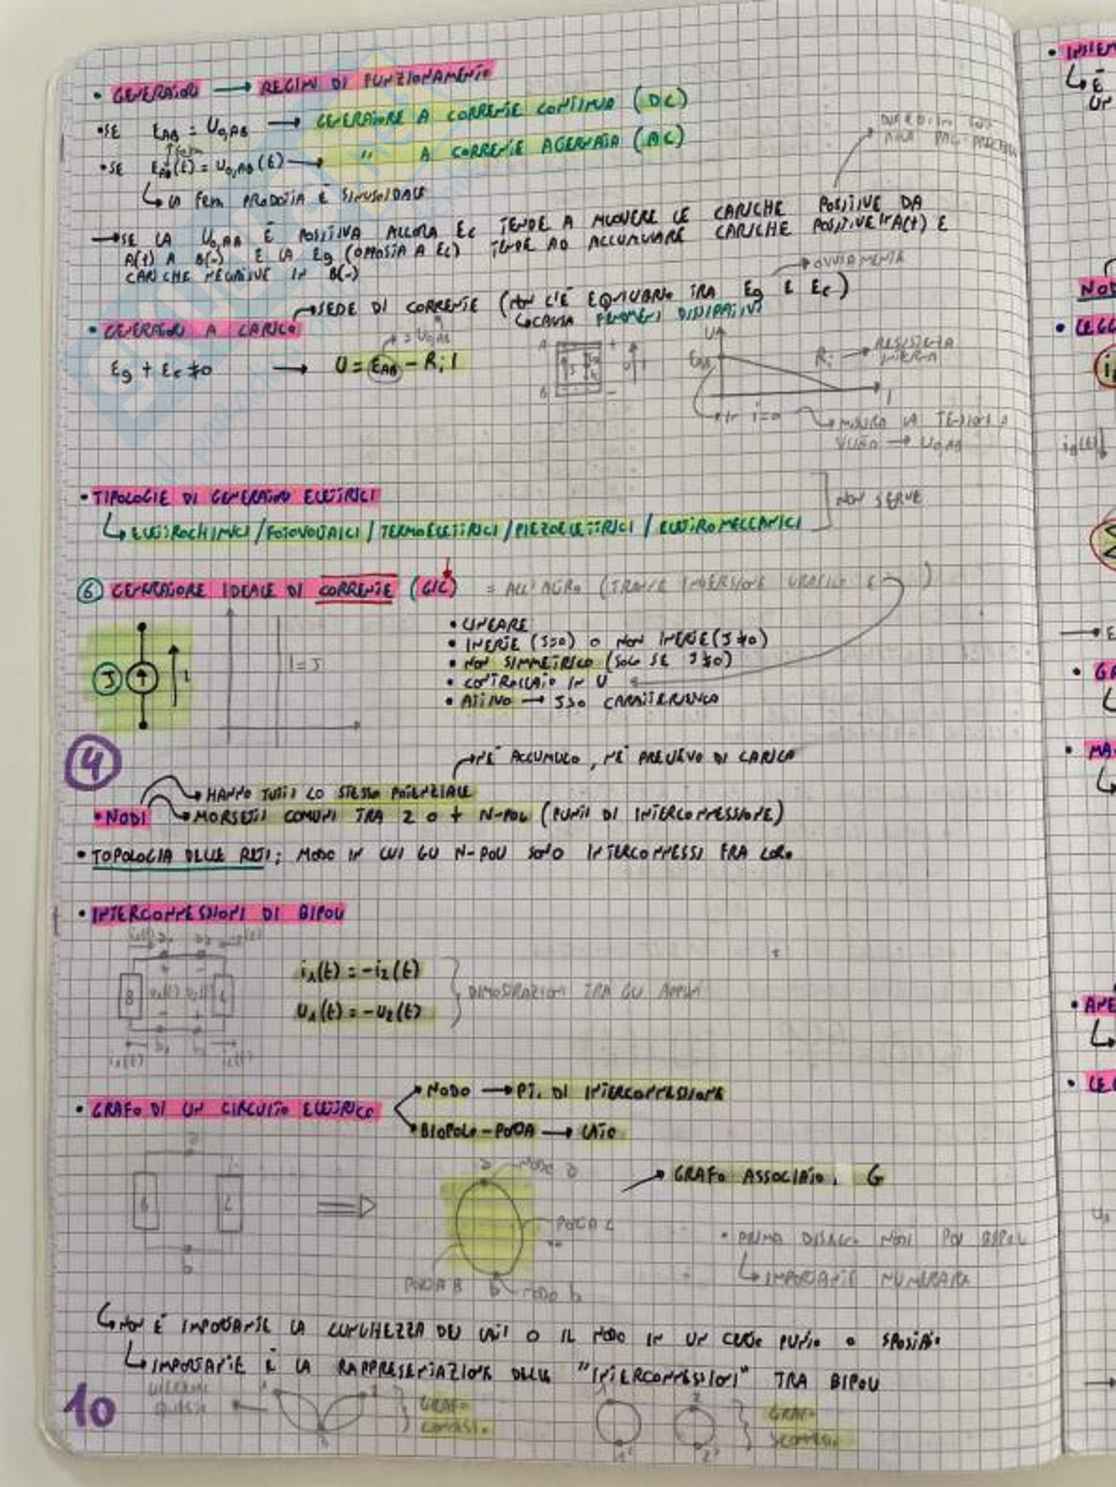 • GENERATORI → REGIMI DI FUNZIONAMENTO
• SE E_AB = U_0,AB → GENERATORE A CORRENTE CONTINUA (DC)
• SE E_AB(t) = U_0,AB(t) → " A CORRENTE ALTERNATA (AC)
↳ LA fem PRODOTTA È SINUSOIDALE
→ SE LA U_0,AB È POSITIVA ALLORA Ec TENDE A MUOVERE LE CARICHE POSITIVE DA
A(+) A B(-) E LA Eg (OPPOSTA A Ec) TENDE AD ACCUMULARE CARICHE POSITIVE IN A(+) E
CARICHE NEGATIVE IN B(-)
→ OVVIAMENTE
• GENERATORI A CARICO → SEDE DI CORRENTE (NON C'È EQUILIBRIO TRA Eg E Ec)
↳ CAUSA FENOMENI DISSIPATIVI
= U_0,AB
Eg + Ec ≠ 0 → U = E_AB - Ri I
A
B
U
E_AB
I
Ri → RESISTENZA INTERNA
IN i=0 → MISURO LA TENSIONE A
VUOTO → U_0,AB
• TIPOLOGIE DI GENERATORI ELETTRICI
↳ ELETTROCHIMICI / FOTOVOLTAICI / TERMOELETTRICI / PIEZOELETTRICI / ELETTROMECCANICI
NON SERVE
⑥ GENERATORE IDEALE DI CORRENTE (GIC) = ALL'ALTRO (TRANNE INVERSIONE GRAFICO E )
J I
I = J
• LINEARE
• INERTE (J=0) O NON INERTE (J≠0)
• NON SIMMETRICO (SOLO SE J≠0)
• CONTROLLATO IN U
• ATTIVO →
4
→ NÈ ACCUMULO, NÈ PRELIEVO DI CARICA
→ HANNO TUTTI LO STESSO POTENZIALE
• NODI → MORSETTI COMUNI TRA 2 O + N-POLI (PUNTI DI INTERCONNESSIONE)
• TOPOLOGIA DELLE RETI: MODO IN CUI GLI N-POLI SONO INTERCONNESSI FRA LORO
• INTERCONNESSIONI DI BIPOLI
i₁(t) = -i₂(t)
U₁(t) = -U₂(t)
DIMOSTRAZIONI TRA GLI APPUNTI
• GRAFO DI UN CIRCUITO ELETTRICO
→ NODO → PT. DI INTERCONNESSIONE
→ BIPOLO-PORTA → LATO
→ GRAFO ASSOCIATO, G
NODO a
PORTA L
PORTA B
NODO b
• PRIMA DISEGNO NODI POI BIPOLI
↳ IMPORTANTE NUMERARE
↳ NON È IMPORTANTE LA LUNGHEZZA DEI LATI O IL NODO IN UN CERTO PUNTO O SPOSTATO
↳ IMPORTANTE È LA RAPPRESENTAZIONE DELLE "INTERCONNESSIONI" TRA BIPOLI
GRAFO CONNESSO
GRAFO SCONNESSO
10
NOD
• LEGG
• GR
• MA